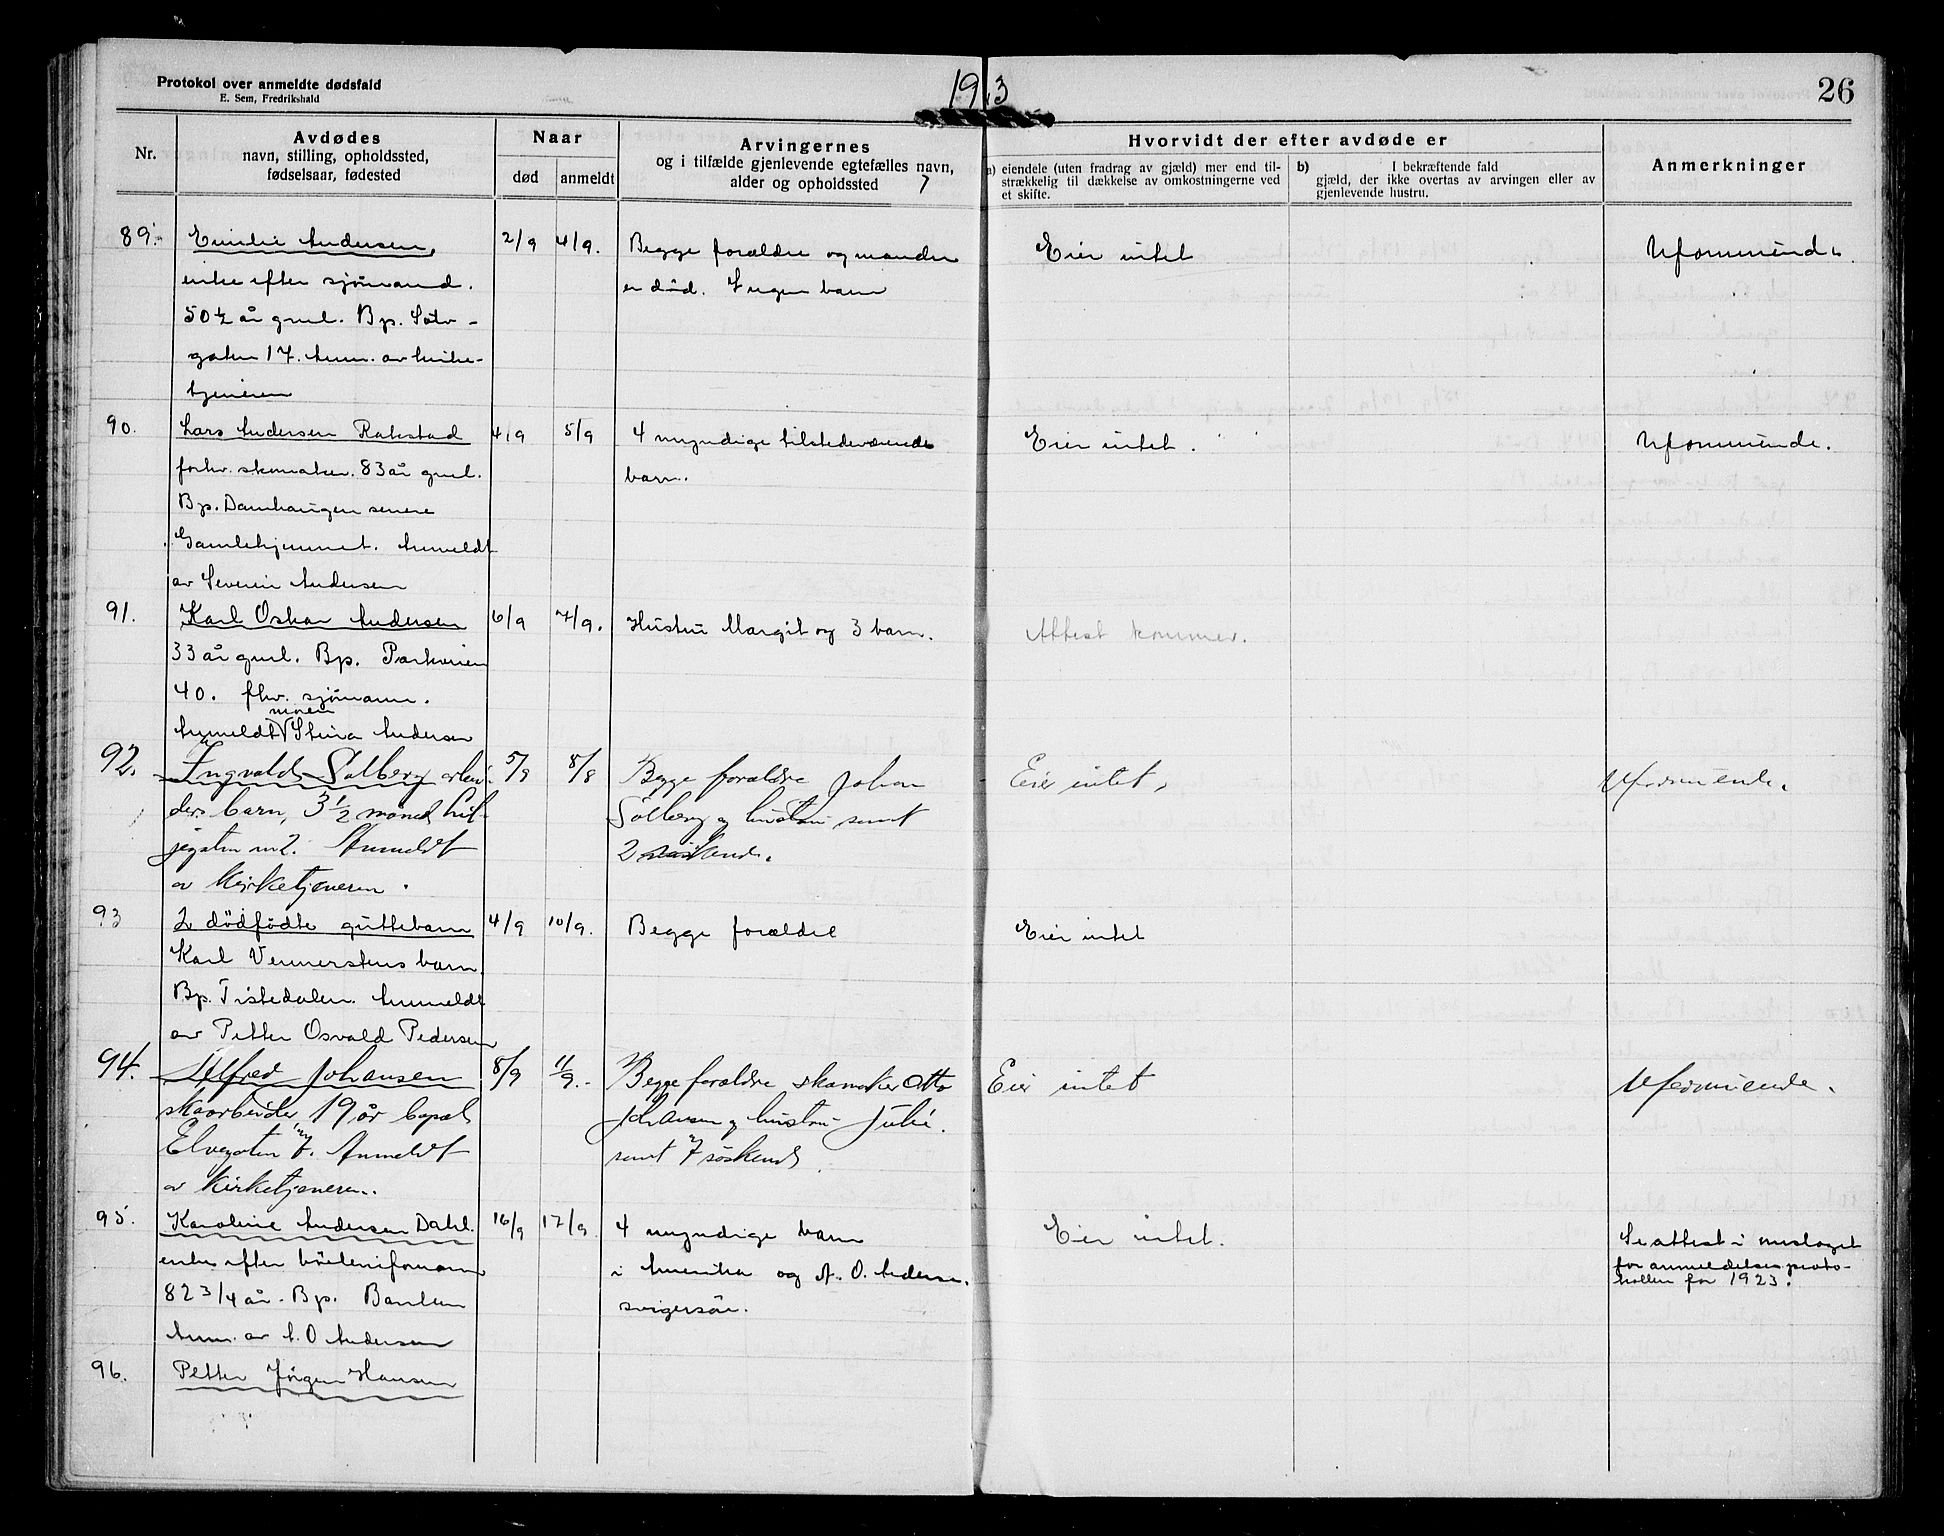 Protokol over anmeldte dødsfald
E. Sem, Fredrikshald
1913
26
Nr.
Avdødes
navn, stilling, opholdssted,
fødselsaar, fødested
Naar
død
anmeldt
Arvingernes
og i tilfælde gjenlevende egtefælles navn,
alder og opholdssted
Hvorvidt der efter avdøde er
a) eiendele (uten fradrag av gjæld) mer end til-
strækkelig til dækkelse av omkostningerne ved
et skifte.
b) I bekræftende fald
gjæld, der ikke overtas av arvingen eller av
gjenlevende hustru.
Anmerkninger
89. Emilie Andersen, 2/9 4/9. Begge forældre og manden Eier intet Uformuende.
enke efter sjømand. er død. Ingen barn
50½ år gml. Bp.
gaten 17. Anm. av kirke-
tjeneren
90. Lars Andersen Rakstad 4/9 5/9 4 myndige tilstedeværende Eier intet. Uformuende.
forhv. skomaker. 83 år gml. barn.
Bp. Damhaugen senere
Gamlehjemmet. Anmeldt
av Severin Andersen
91. Karl Oskar Andersen 6/9 7/9. Hustru Margit og 3 barn. Attest kommer.
33 år gml. Bp. Parkveien
40. fhv. sjømann.
moren
Anmeldt Stina Andersen
92. Ingvald Solberg arbei- 5/9 8/8 Begge forældre Johan Eier intet, Uformuende.
ders barn, 3½ måned Hel- Solberg og hustru samt
jegaten n 2. Anmeldt 2 søskende.
av kirketjeneren.
93 2 dødfødte guttebarn 4/9 10/9. Begge forældre Eier intet
Karl Vennerstens barn.
Bp. Tistedalen. Anmeldt
av Petter Osvald Pedersen
94. Alfred Johansen 8/9 11/9. Begge forældre skomaker Otto Eier intet Uformuende.
skoarbeider, 19 år bopæl Johansen og hustru Julie.
Elvegaten 7. Anmeldt samt 7 søskende.
av kirketjeneren.
95. Karoline Andersen Dahl. 16/9 17/9 4 myndige barn Eier intet. Se attest i omslaget
enke efter i Amerika og A. O. Andersen. for anmeldelsesproto-
82 3/4 år. Bp. Banken svigersøn. kollen for 1923.
Anm. av A. O Andersen
96. Petter Jörgen Hansen